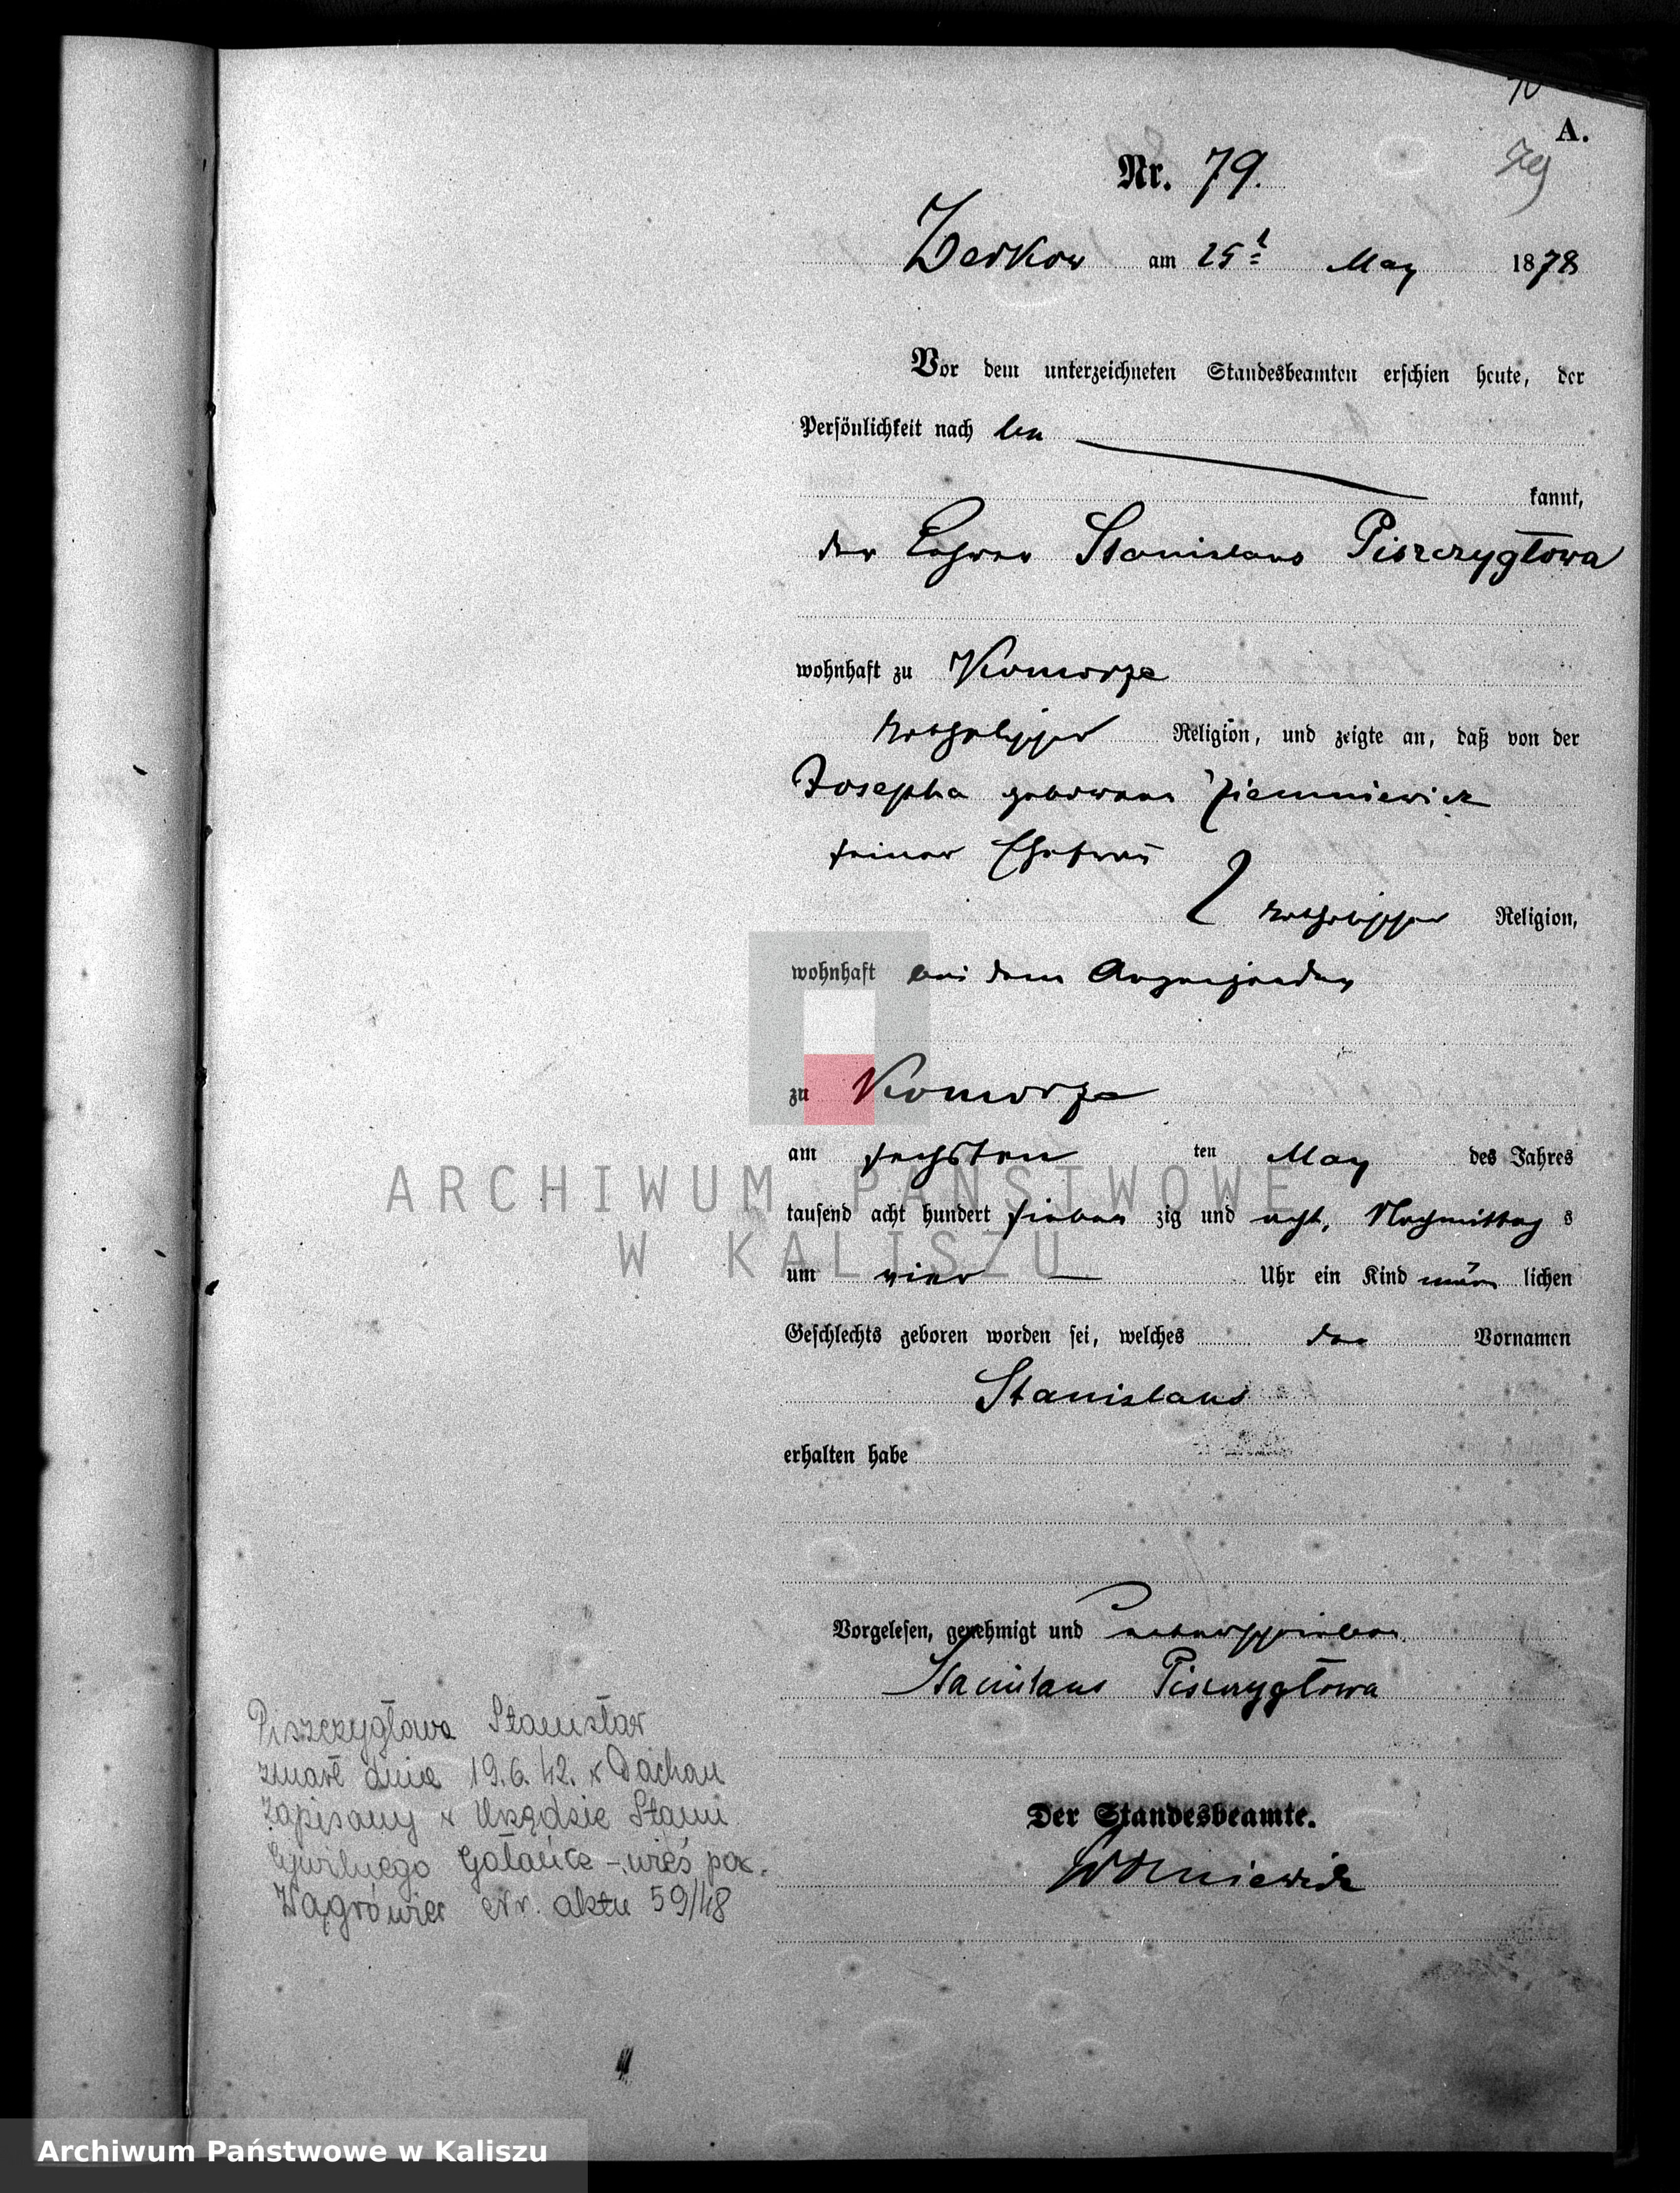 70
A.
79
Nr. 79.
Zerkow am 15t May 1878
Vor dem unterzeichneten Standesbeamten erschien heute, der
Persönlichkeit nach be
kannt,
der Stanislaus Piszczygłowa
wohnhaft zu Komorze
katholischer Religion, und zeigte an, daß von der
Josepha geborenen Ziemniewicz
seiner Ehefrau
katholischer Religion,
wohnhaft bei dem Anzeigenden
zu Komorze
am sechsten ten May des Jahres
tausend acht hundert sieben zig und acht, Nachmittag s
um vier Uhr ein Kind män lichen
Geschlechts geboren worden sei, welches den Vornamen
Stanislaus
erhalten habe
Vorgelesen, genehmigt und unterschrieben
Stanislaus Piszczygłowa
Der Standesbeamte.
Piszczygłowa Stanisław
zmarł dnia 19.6.42. w Dachau
zapisany w Urzędzie Stanu
Cywilnego Gołańcz - wieś pow.
Wągrówiec Nr. aktu 59/48
ARCHIWUM PAŃSTWOWE
W KALISZU
Archiwum Państwowe w Kaliszu